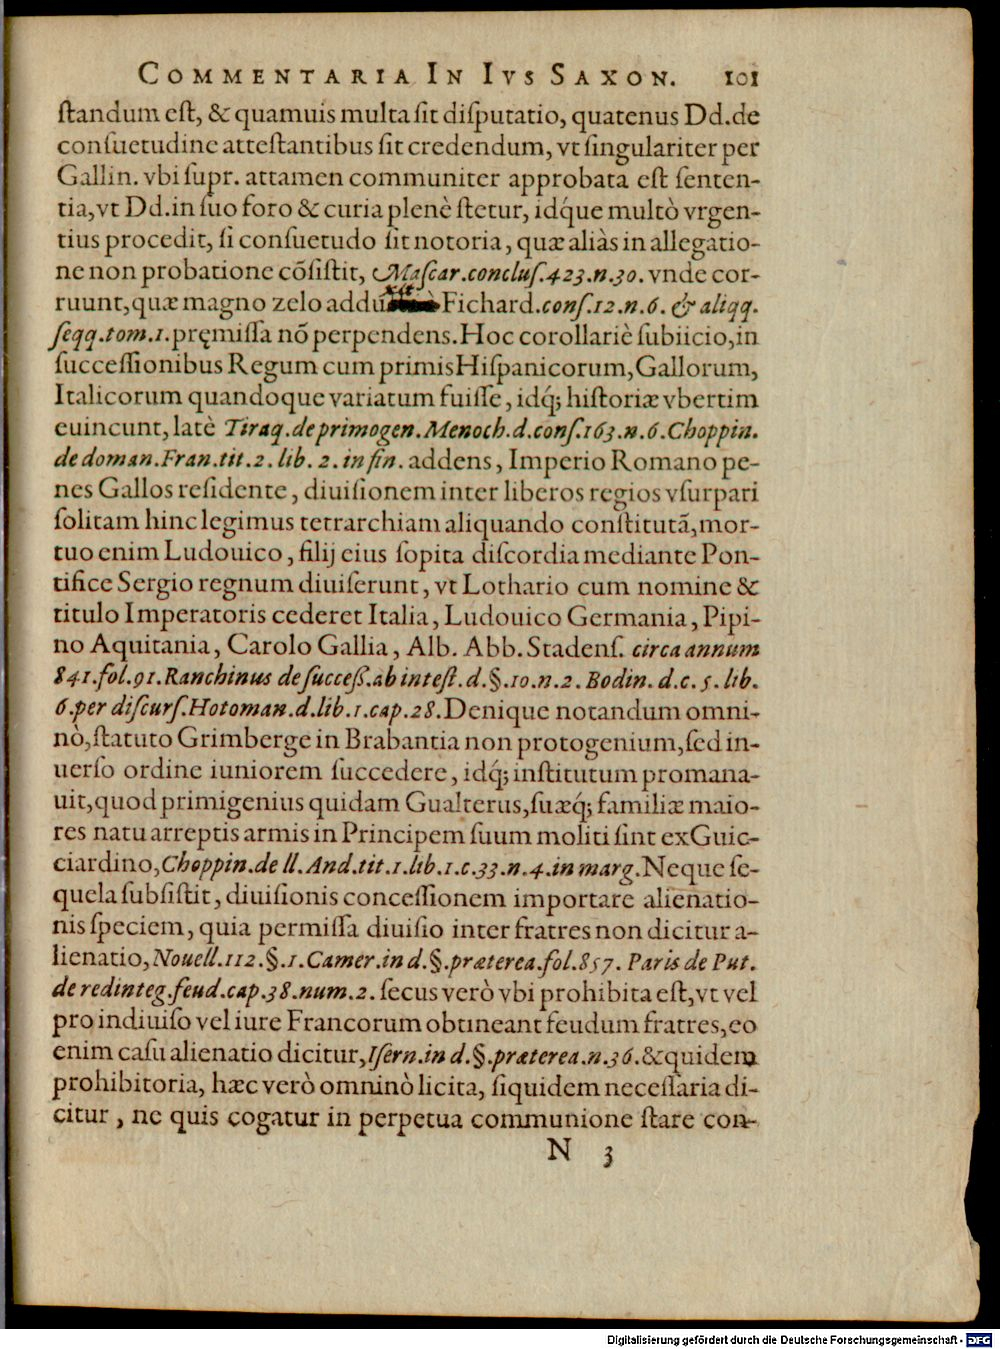 COMMENTARIA IN IVS SAXON. 101
ſtandum eſt, & quamuis multa ſit diſputatio, quatenus Dd. de
conſuetudine atteſtantibus ſit credendum, vt ſingulariter per
Gallin. vbi ſupr. attamen communiter approbata eſt ſenten-
tia, vt Dd. in ſuo foro & curia plenè ſtetur, idq́ue multò vrgen-
tius procedit, ſi conſuetudo ſit notoria, quæ aliàs in allegatio-
ne non probatione cõſiſtit, Maſcar. concluſ. 423. n. 30. vnde cor-
ruunt, quæ magno zelo addu Fichard. conſ. 12. n. 6. & aliqq.
ſeqq. tom. 1. pręmiſſa nõ perpendens. Hoc corollariè ſubiicio, in
ſucceſſionibus Regum cum primis Hiſpanicorum, Gallorum,
Italicorum quandoque variatum fuiſſe, idq́; hiſtoriæ vbertim
euincunt, latè Tiraq. de primogen. Menoch. d. conſ. 163. n. 6. Choppin.
de doman. Fran. tit. 2. lib. 2. in fin. addens, Imperio Romano pe-
nes Gallos reſidente, diuiſionem inter liberos regios vſurpari
ſolitam hinc legimus tetrarchiam aliquando conſtitutã, mor-
tuo enim Ludouico, filij eius ſopita diſcordia mediante Pon-
tifice Sergio regnum diuiſerunt, vt Lothario cum nomine &
titulo Imperatoris cederet Italia, Ludouico Germania, Pipi-
no Aquitania, Carolo Gallia, Alb. Abb. Stadenſ. circa annum
841. fol. 91. Ranchinus de ſucceſſ. ab inteſt. d. §. 10. n. 2. Bodin. d. c. 5. lib.
6. per diſcurſ. Hotoman. d. lib. 1. cap. 28. Denique notandum omni-
nò, ſtatuto Grimberge in Brabantia non protogenium, ſed in-
uerſo ordine iuniorem ſuccedere, idq́; inſtitutum promana-
uit, quod primigenius quidam Gualterus, ſuæq́; familiæ maio-
res natu arreptis armis in Principem ſuum moliti ſint ex Guic-
ciardino, Choppin. de ll. And. tit. 1. lib. 1. c. 33. n. 4. in marg. Neque ſe-
quela ſubſiſtit, diuiſionis conceſſionem importare alienatio-
nis ſpeciem, quia permiſſa diuiſio inter fratres non dicitur a-
lienatio, Nouell. 112. §. 1. Camer. in d. §. præterea. fol. 857. Paris de Put.
de redinteg. feud. cap. 38. num. 2. ſecus verò vbi prohibita eſt, vt vel
pro indiuiſo vel iure Francorum obtineant feudum fratres, eo
enim caſu alienatio dicitur, Iſern. in d. §. præterea. n. 36. & quidem
prohibitoria, hæc verò omninò licita, ſiquidem neceſſaria di-
citur, ne quis cogatur in perpetua communione ſtare con-
N 3
Digitalisierung gefördert durch die Deutsche Forschungsgemeinschaft - DFG